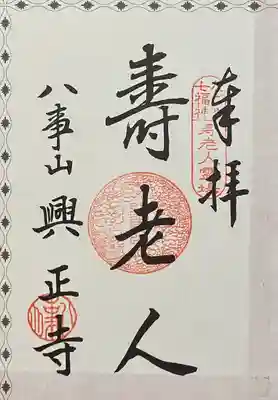 奉拝
七福神寿老人霊場
壽老人
八事山興正寺